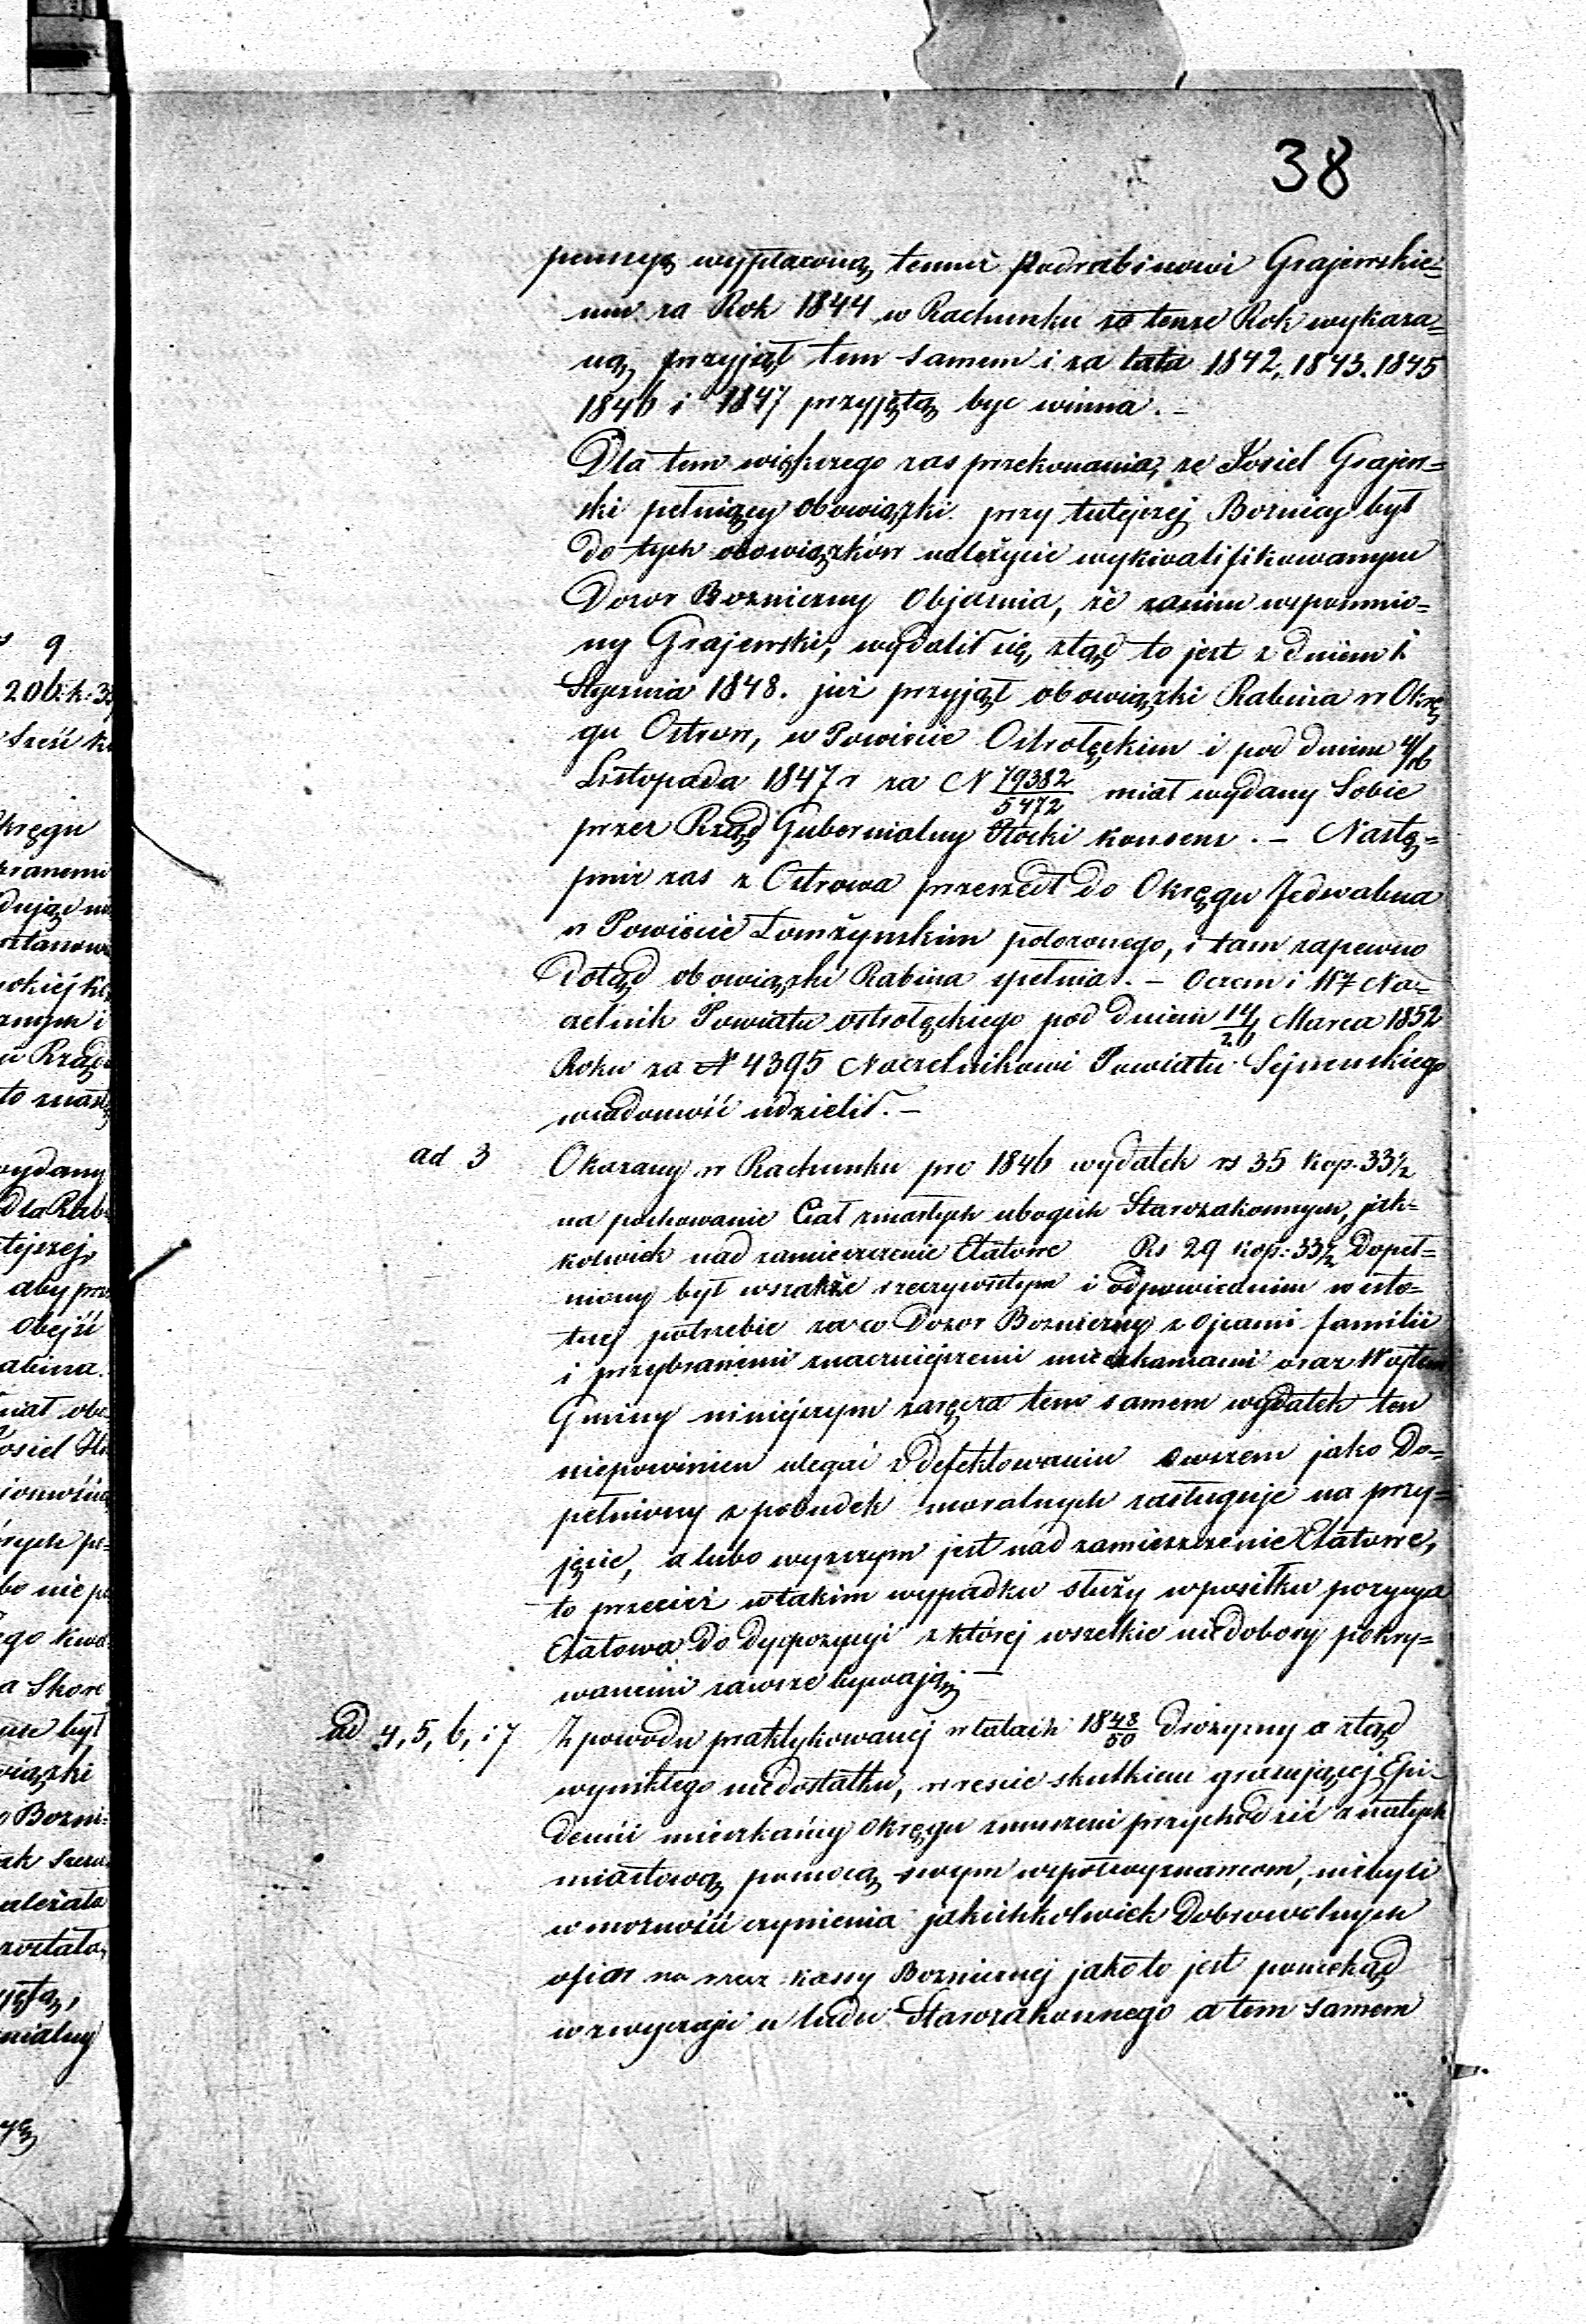 38
pensyę wypłaconą temuż Podrabinowi Grajewskie=
mu za Rok 1844 w Rachunku za tenże Rok wykaza=
ną przyjął tem samem i za lata 1842, 1843. 1845
1846 i 1847 przyjętą być winna. –
Dla tem większego zas przekonania, że Josiel Grajew=
ski pełniący obowiązki przy tutejszej Boznicy był
do tych obowiązków należycie wykwalifikowanym
Dozor Bozniczny Objasnia, że zanim wspomnio=
ny Grajewski, wydalił się ztąd to jest z dniem 1
Stycznia 1848. już przyjął obowiązki Rabina w Okrę
gu Ostrow, w Powiecie Ostrołęckim i pod dniem 4/16
Listopada 1847 r za N 79382/5472 miał wydany Sobie
przez Rząd Gubernialny Płocki konsens. – Nastę=
pnie zas z Ostrowa przeszedł do Okręgu Jedwabna
w Powiecie Łomżyńskim położonego, i tam zapewno
dotąd obowiązki Rabina spełnia. – Oczem i W Na=
czelnik Powiatu ostrołęckiego pod dniem 14/26 Marca 1852
Roku za N 4395 Naczelnikowi Powiatu Sejneńskiego
wiadomość udzielił. –
ad 3 Okazany w Rachunku pro 1846 wydatek rs 35 kop. 33½
na pochowanie Ciał zmarłych ubogich Starozakonnych, jak=
kolwiek nad zamieszczenie Etatowe Rs 29 kop: 33½ Dopeł=
niony był wszakże rzeczywistym i odpowiednim w isto=
tnej potrzebie za co Dozor Bozniczny z Ojcami familii
i przybranemi znaczniejszemi mieszkańcami oraz Wójtem
Gminy niniejszym zaręcza tem samem wydatek ten
niepowinien ulegać zdefektowaniu owszem jako Do=
pełniony z pobudek moralnych zasługuje na przy=
jęcie, a lubo wyższym jest nad zamieszczenie Etatowe,
to przecież w takim wypadku służy w posiłku pozycya
Etatowa do dyspozycyi z której wszelkie niedobory pokry=
wanemi zawsze bywają. –
ad 4, 5, 6, i 7 Z powodu praktykowanej w latach 1848/50 drożyzny a ztąd
wynikłego niedostatku, wreście skutkiem grasującej Epi=
demii mieszkańcy Okręgu zmuszeni przychodzić z natych
miastową pomocą swym współwyznawcom, niebyli
w możności czynienia jakichkolwiek Dobrowolnych
ofiar na rzecz kassy Boznicznej jak to jest poniekąd
w zwyczaju u ludu Starozakonnego a tem samem